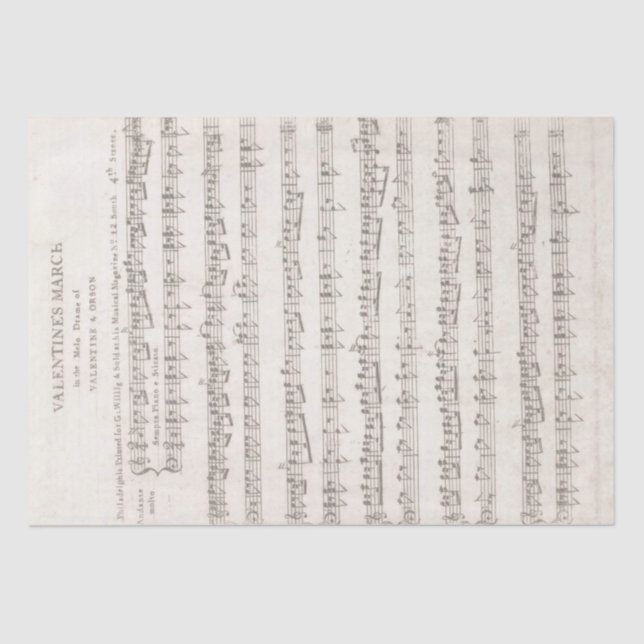 VALENTINE'S MARCH
in the Melo Drame of
VALENTINE & ORSON
Philadelphia Printed for G. Willig & Sold at his Musical Magazine No. 12 South 4th Street.
Andante
molto
Sempre Piano e Staccato